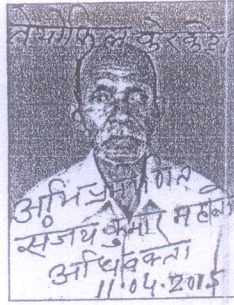 अभिप्रमाणित
संजय कुमार महतो
अधिवक्ता
11.04.2015